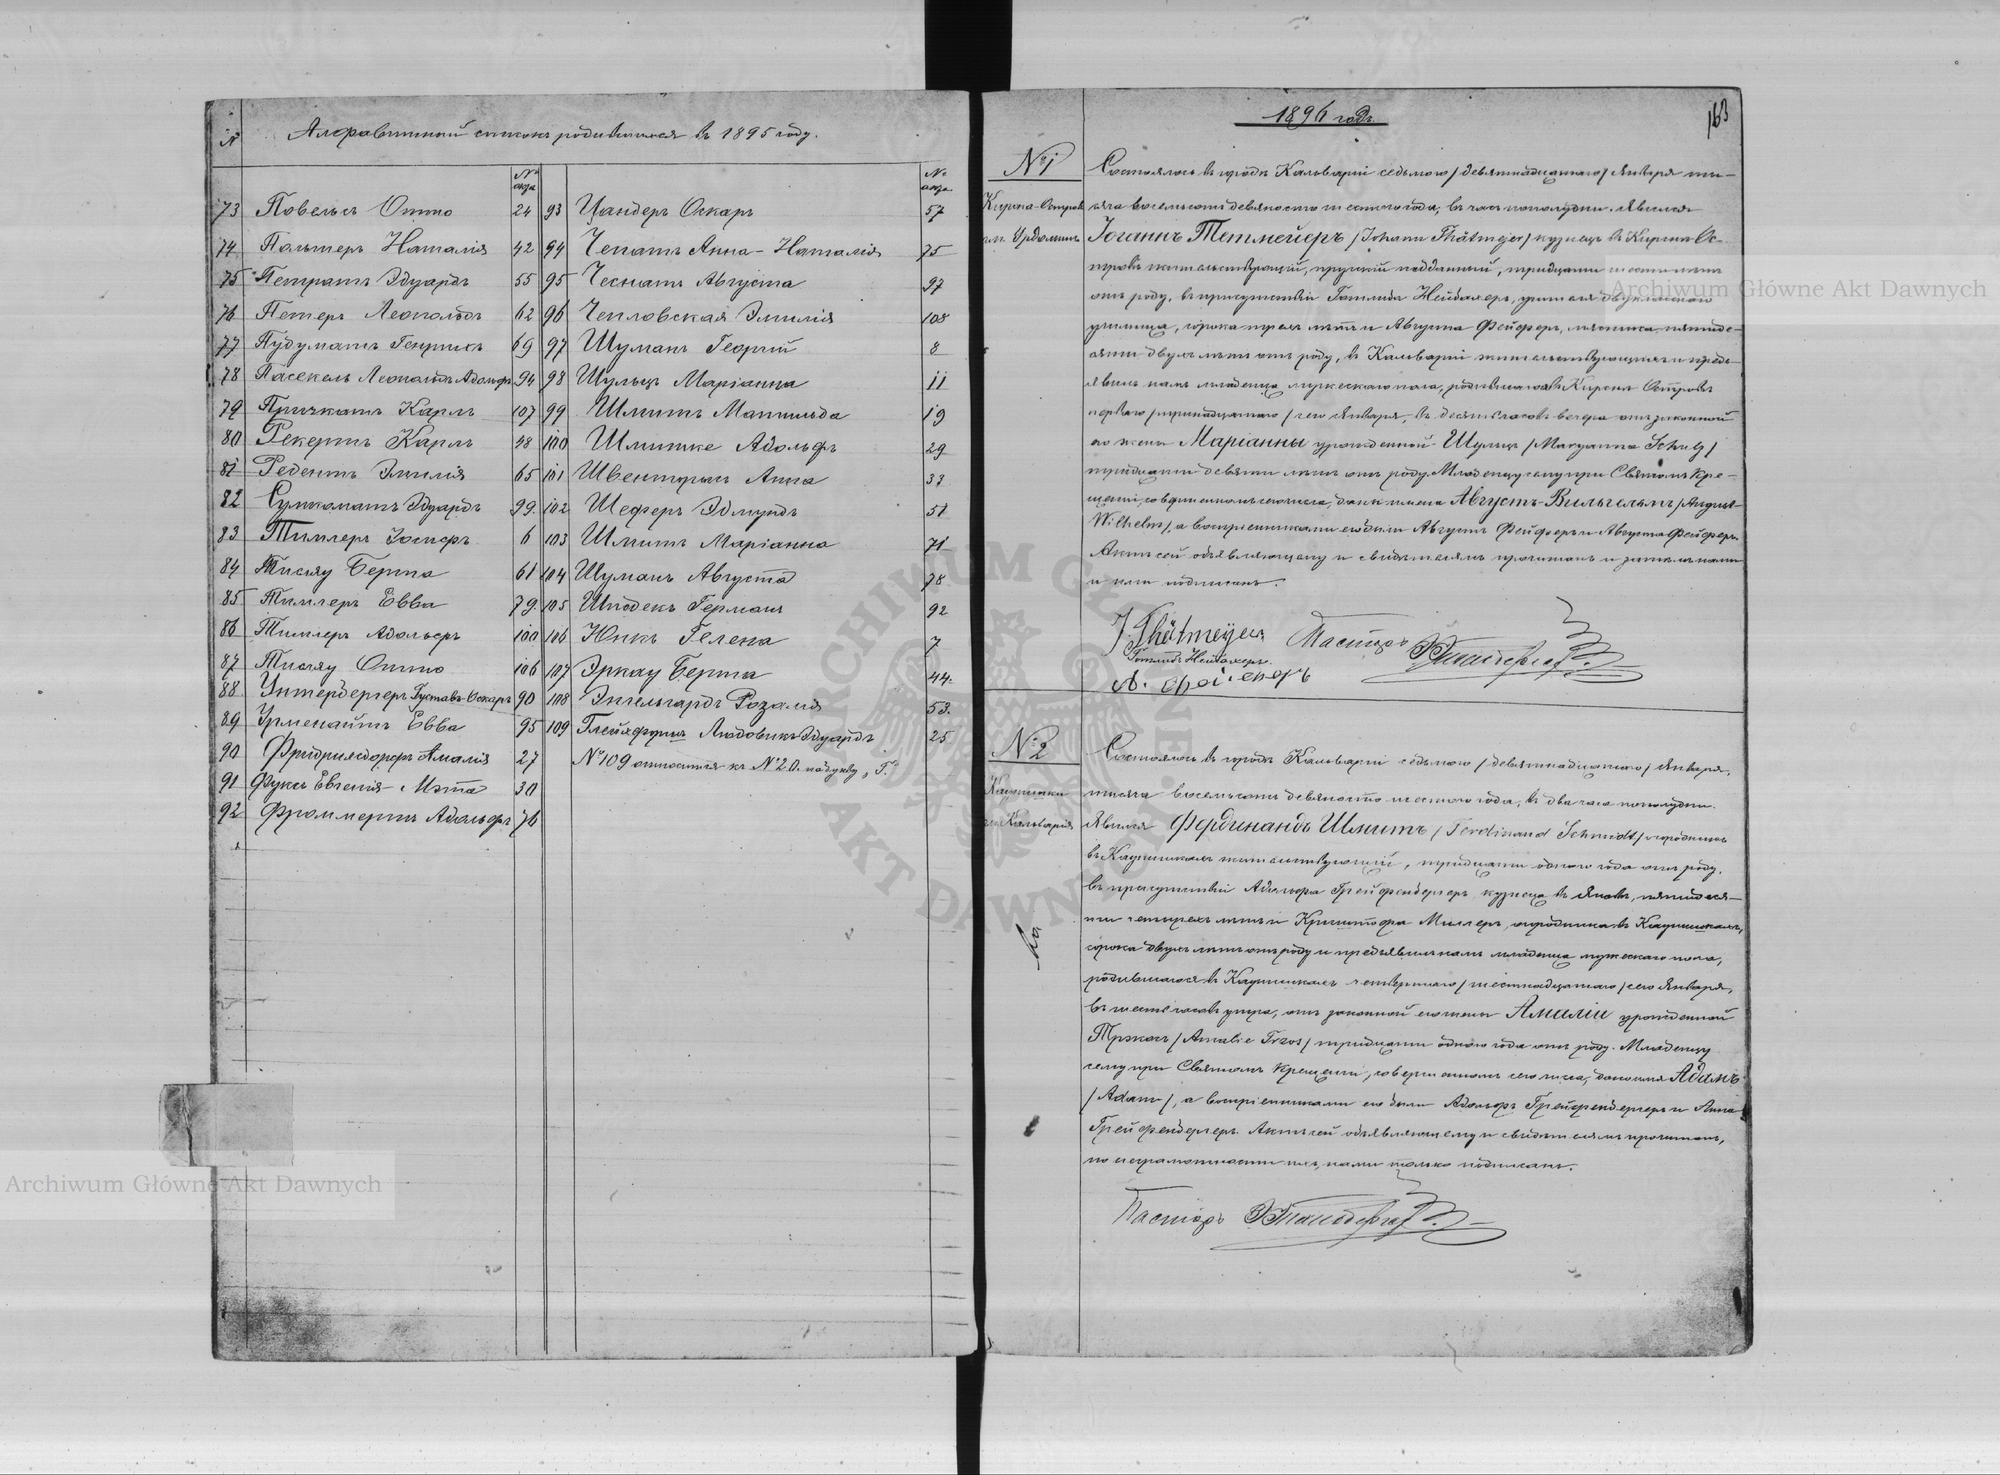 №
Алфавитный списокъ родившихся въ 1895 году.
№ акта
№ акта
73 Повельсъ Отто 24
74 Польтеръ Наталія 42
75 Петратъ Эдуардъ 55
76 Петеръ Леопольдъ 62
77 Пудуматъ Генрихъ 69
78 Пасекель Леопольдъ Адольфъ 94
79 Причкатъ Карлъ 107
80 Рекертъ Карлъ 48
81 Редентъ Эмилія 65
82 Суткоматъ Эдуардъ 99.
83 Тиллеръ Іосифъ 6
84 Тисляу Берта 61
85 Тиллеръ Евва 79.
86 Тиллеръ Адольфъ 100
87 Тисляу Отто 106
88. Унтербергеръ Густавъ-Оскаръ 90
89 Урменайтъ Евва 95
90 Фридрихсдорфъ Амалія 27
91 Фуксъ Евгенія-Мэта 30
92 Фроммертъ Адольфъ 76
93 Цандеръ Оскаръ 57
94 Чепатъ Анна-Наталія 75
95 Чеснатъ Августа 97
96 Чепловская Эмилія 108
97 Шуманъ Георгій 8
98 Шульцъ Маріанна 11
99 Шмитъ Матильда 19
100 Шмитке Адольфъ 29
101 Швенторысъ Анна 33
102 Шеферъ Эдмундъ 51
103 Шмитъ Маріанна 71
104 Шуманъ Августа 78
105 Шподекъ Германъ 92
106 Юнкъ Гелена 7
107 Эркау Берта 44.
108 Энгельгардъ Розалія 53.
109 Глейхфуршъ Людовикъ Эдуардъ 25
№109 относится къ №20. подъ букву „Г."
1896 годъ.
163
№1
Кирсна-Островъ
гм. Урдоминъ
Состоялось въ городѣ Кальваріи седьмого /девятнадцатаго/ Января ты-
сяча восемьсотъ девяносто шестого года, въ часъ пополудни. Явился
Іоганнъ Тетмейеръ /Johann Thätmejer/ кузнецъ въ Кирсна Ос-
тровѣ жительствующій, прусскій подданный, тридцати шести лѣтъ
отъ роду, въ присутствіи Готлиба Нейдахеръ, учителя двухкласснаго
училища, сорока трехъ лѣтъ и Августа Фейферъ, мясника, пятиде-
сяти двухъ лѣтъ отъ роду, въ Кальваріи жительствующихъ и предъ-
явилъ намъ младенца мужескаго пола, родившагося въ Кирснѣ Островѣ
перваго /тринадцатаго/ сего Января, въ десять часовъ вечера отъ законной
его жены Маріанны урожденной Шульцъ /Maryanna Schulz/
тридцати девяти лѣтъ отъ роду. Младенцу сему при Святомъ Кре-
щеніи, совершенномъ сего числа, дано имя Августъ-Вильгельмъ /August-
Wilhelm/, а воспріемниками его были Августъ Фейферъ и Августа Фейферъ.
Актъ сей объявляющему и свидѣтелямъ прочитанъ и затѣмъ нами
и ими подписанъ.
J. Thätmeyer
Готлибъ Нейдахеръ.
А. Фейферъ
Пасторъ
№2
Каушишки
гм. Кальварія
Состоялось въ городѣ Кальваріи седьмого /девятнадцатаго/ Января,
тысяча восемьсотъ девяносто шестого года, въ два часа пополудни.
Явился Фердинандъ Шмитъ /Ferdinand Schmidt/ огородникъ
въ Каушишкахъ жительствующій, тридцати одного года отъ роду,
въ присутствіи Адольфа Грейфенбергеръ кузнеца въ Яновѣ, пятидеся-
ти четырехъ лѣтъ и Криштофа Миллеръ, огородника въ Каушишкахъ,
сорока двухъ лѣтъ отъ роду и предъявилъ намъ младенца мужескаго пола,
родившагося въ Каушишкахъ четвертаго /шестнадцатаго/ сего Января,
въ шесть часовъ утра, отъ законной его жены Амаліи урожденной
Трзосъ /Amalie Trzos/ тридцати одного года отъ роду. Младенцу
сему при Святомъ Крещеніи, совершенномъ сего числа, дано имя Адамъ
/Adam/, а воспріемниками его были Адольфъ Грейфенбергеръ и Анна
Грейфенбергеръ. Актъ сей объявляющему и свидѣтелямъ прочитанъ,
по неграмотности ихъ, нами только подписанъ.
Пасторъ
Archiwum Główne Akt Dawnych
Archiwum Główne Akt Dawnych
ARCHIWUM GŁÓWNE AKT DAWNYCH